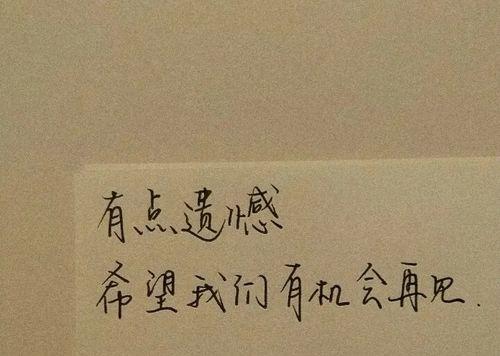 有点遗憾
希望我们有机会再见.